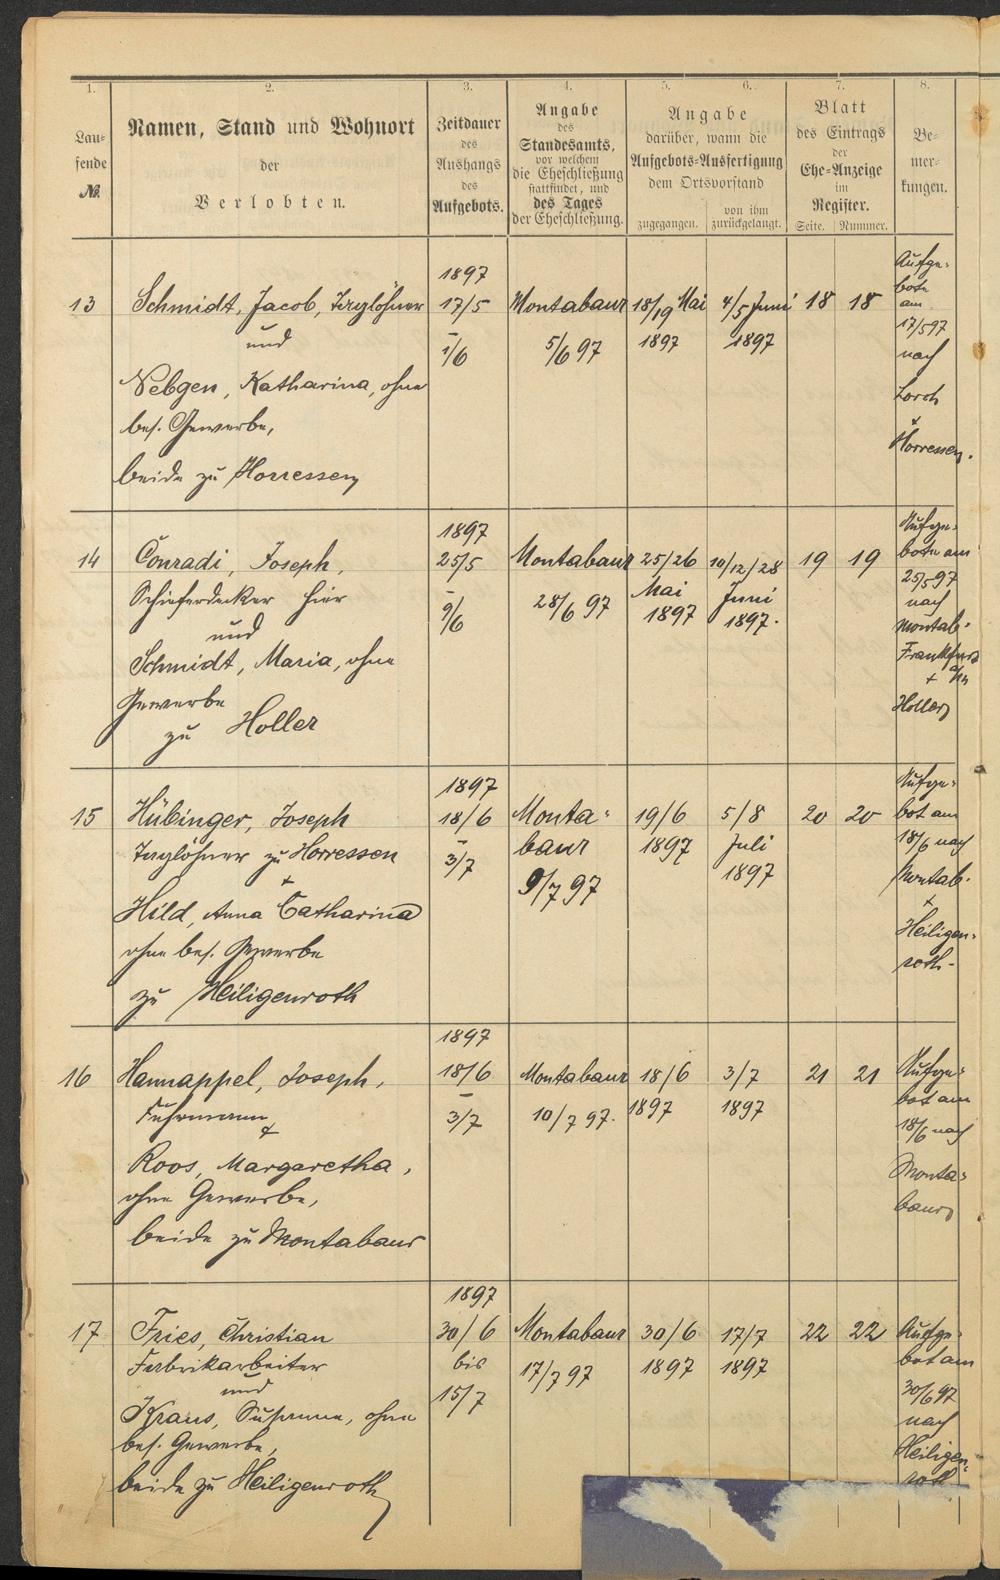 1. 2. 3. 4. 5. 6. 7. 8.
Lau-
fende
No.
Namen, Stand und Wohnort
der
Verlobten.
Zeitdauer
des
Aushangs
des
Aufgebots.
Angabe
des
Standesamts,
vor welchem
die Eheschließung
stattfindet, und
des Tages
der Eheschließung.
Angabe
darüber, wann die
Aufgebots-Ausfertigung
dem Ortsvorstand
zugegangen.
von ihm
zurückgelangt.
Blatt
des Eintrags
der
Ehe-Anzeige
im
Register.
Seite. Nummer.
Be-
mer-
kungen.
13
Schmidt, Jacob, Taglöhner
und
Nebgen, Katharina, ohne
bes. Gewerbe,
beide zu Horressen
1897
17/5
-
1/6
Montabaur
5/6 97
18/19 Mai
1897
4/5 Juni
1897
18 18
Aufge-
bote
am
17/5 97
nach
Lorch
+
Horressen.
14
Conradi, Joseph,
Schieferdecker hier
und
Schmidt, Maria, ohne
Gewerbe
zu Holler
1897
25/5
-
9/6
Montabaur
28/6 97
25/26
Mai
1897
10/12/28
Juni
1897.
19 19
Aufge-
bote am
25/5 97
nach
Montab-
Frankfurt
a/M
+
Holler
15
Hübinger, Joseph
Taglöhner zu Horressen
+
Hild, Anna Catharina
ohne bes. Gewerbe
zu Heiligenroth
1897
18/6
-
3/7
Monta-
baur
9/7 97
19/6
1897
5/8
Juli
1897
20 20
Aufge-
bot am
18/6 nach
Montab.
+
Heiligen-
roth.
16
Hannappel, Joseph,
Fuhrmann
&
Roos, Margaretha,
ohne Gewerbe,
beide zu Montabaur
1897
18/6
-
3/7
Montabaur
10/7 97.
18/6
1897
3/7
1897
21 21
Aufge-
bot am
18/6 nach
Monta-
baur
17
Fries, Christian
Fabrikarbeiter
und
Kraus, Susanna, ohne
bes. Gewerbe,
beide zu Heiligenroth
1897
30/6
bis
15/7
Montabaur
17/7 97
30/6
1897
17/7
1897
22 22
Aufge-
bot am
30/6 97
nach
Heiligen-
roth